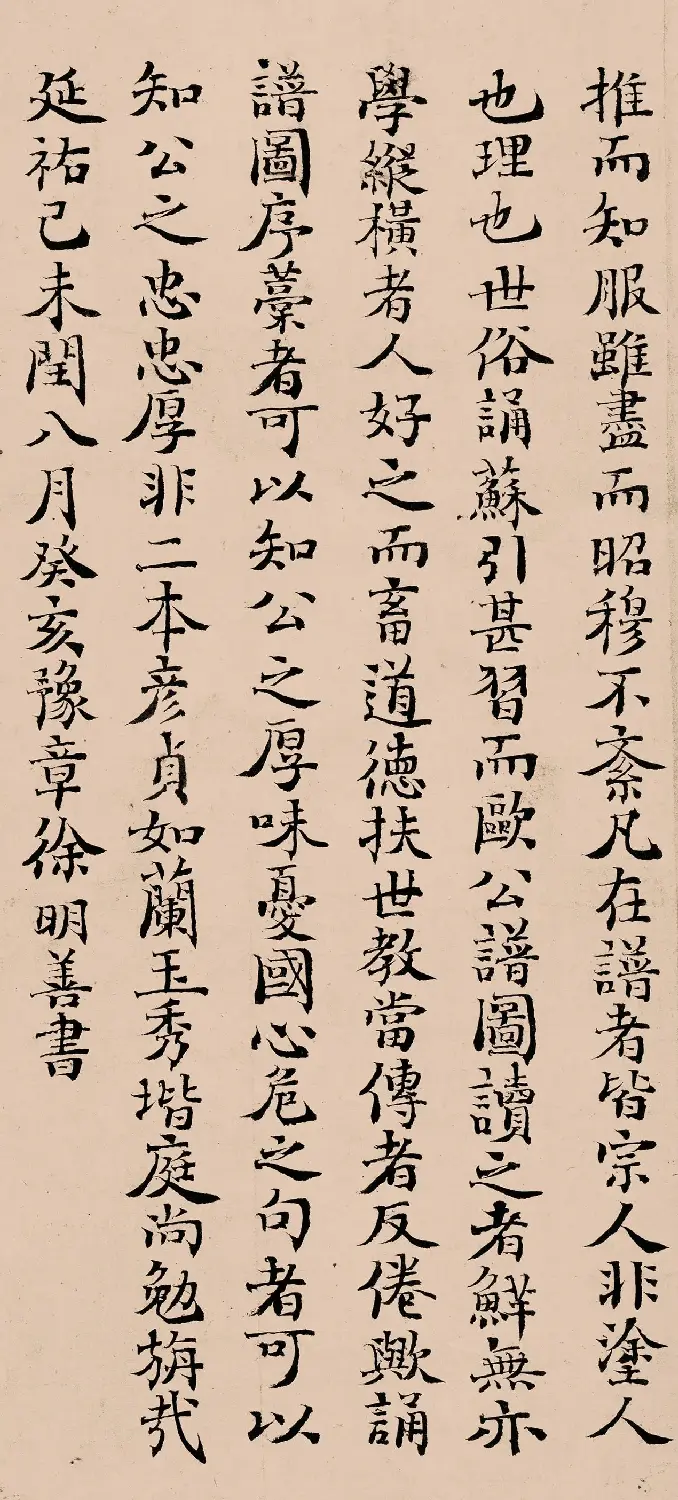 推而知服雖盡而昭穆不紊凡在譜者皆宗人非塗人
也理也世俗誦蘇引甚習而歐公譜圖讀之者鮮無亦
學縱橫者人好之而畜道德扶世教當傳者反倦歟誦
譜圖序藁者可以知公之厚味憂國心危之句者可以
知公之忠忠厚非二本彦貞如蘭玉秀堦庭尚勉旃哉
延祐己未閏八月癸亥豫章徐明善書